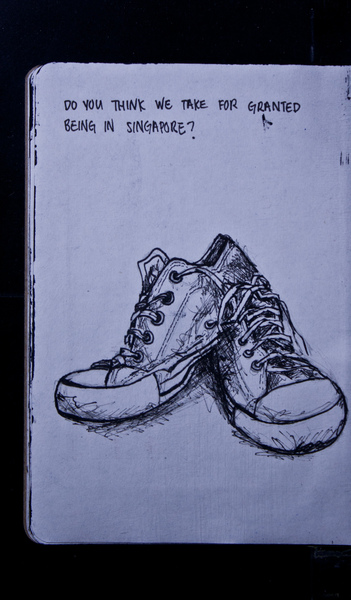 DO YOU THINK WE TAKE FOR GRANTED
BEING IN SINGAPORE?